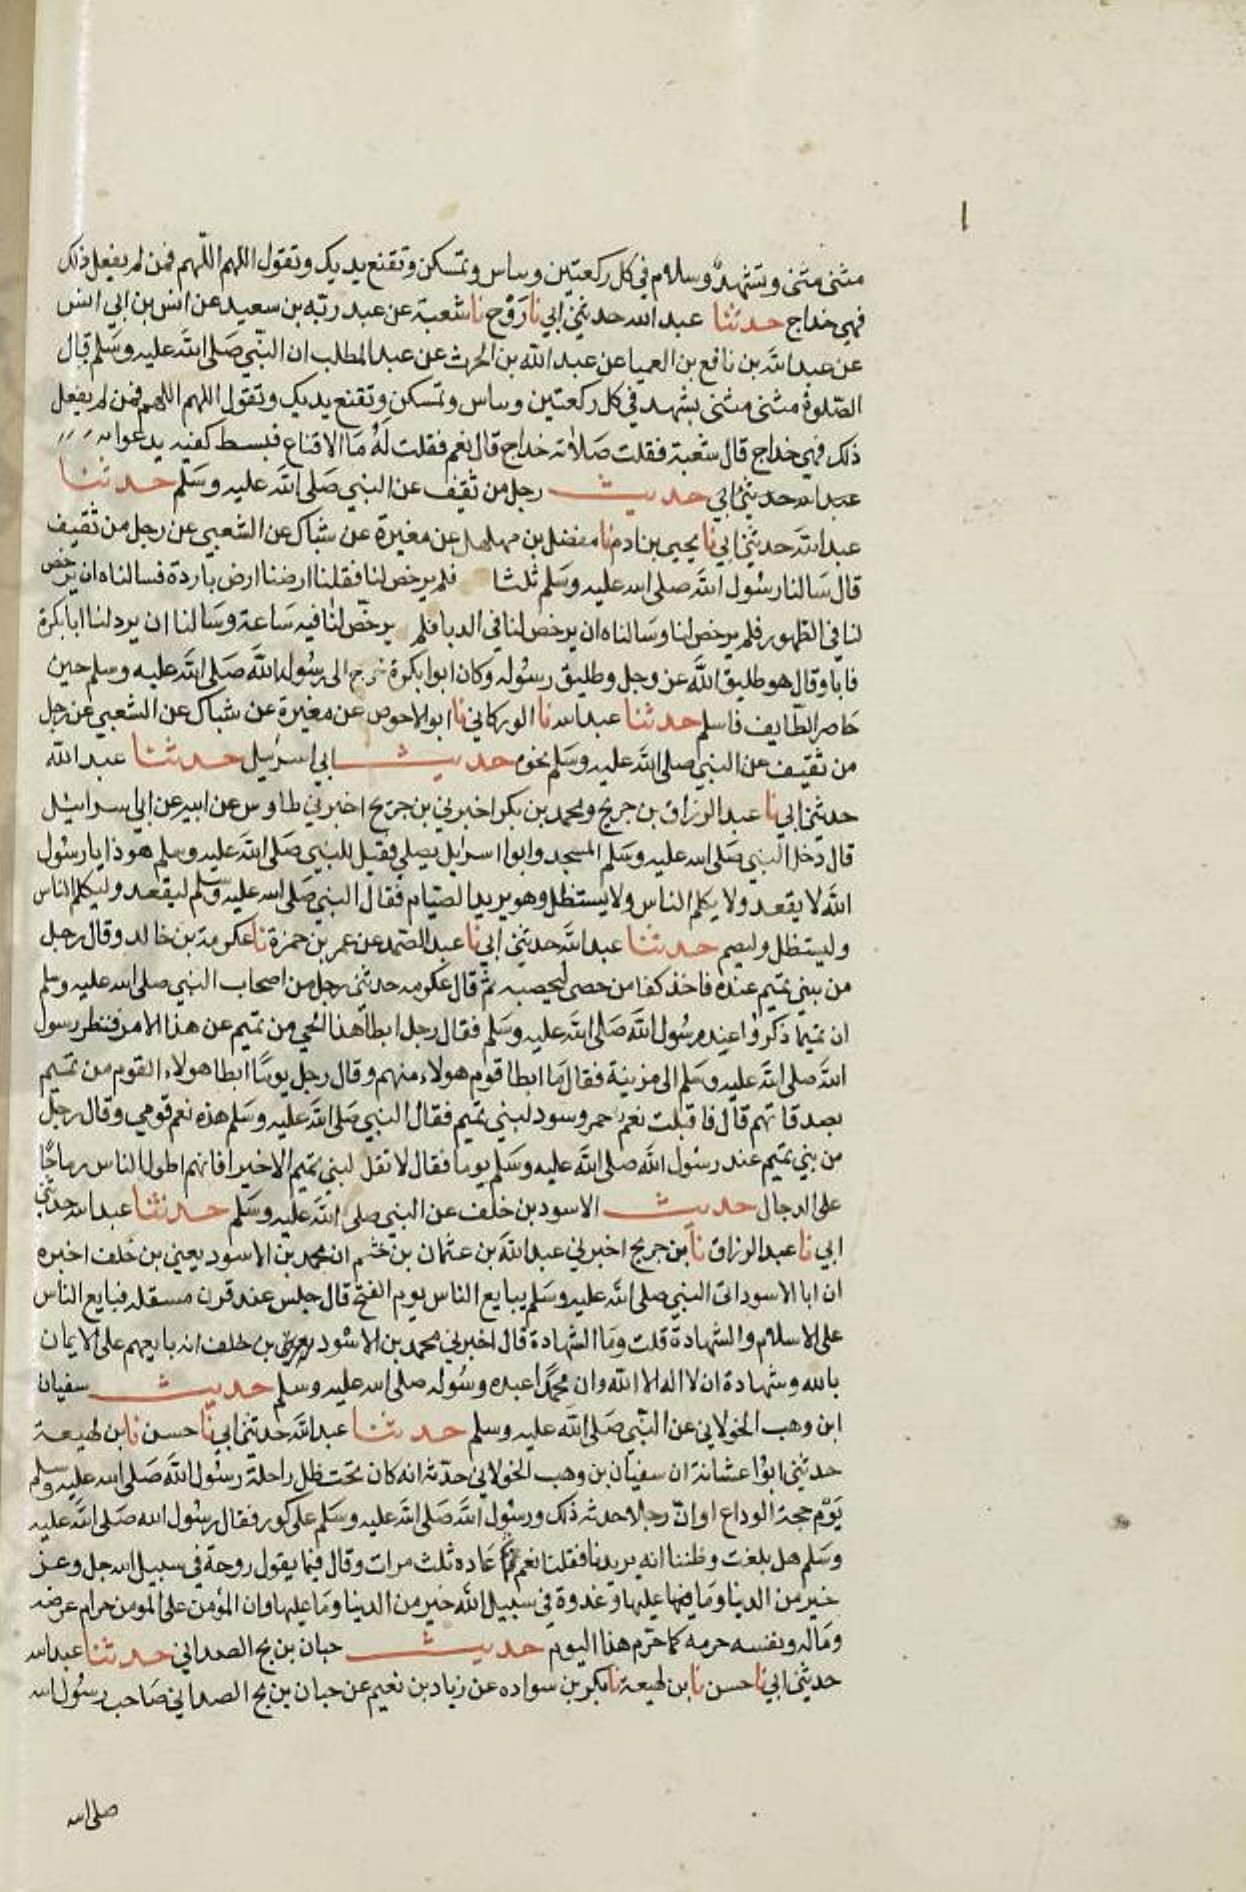 مثنى مثنى وتشهد وسلام في كل ركعتين وبباس وتمسكن وتقنع يديك وتقول اللهم اللهم فمن لم يفعل ذلك
فهي خداج حدثنا عبد الله حدثني ابي نا روح نا شعبة عن عبد ربه بن سعيد عن انس بن ابي انس
عن عبد الله بن نافع بن العميا عن عبد الله بن الحرث عن عبد المطلب ان النبي صلى الله عليه وسلم قال
الصلوة مثنى مثنى بشهد في كل ركعتين وبباس وتمسكن وتقنع يديك وتقول اللهم اللهم فمن لم يفعل
ذلك فهي خداج قال شعبة فقلت صلاته خداج قال نعم فقلت له ما الاقناع فبسط كفيه يدعوا به
عبد الله حدثني ابي حديث رجل من ثقيف عن النبي صلى الله عليه وسلم حدثنا
عبد الله حدثني ابي نا يحيى بن ادم نا مفضل بن مهلهل عن مغيرة عن شباك عن الشعبي عن رجل من ثقيف
قال سالنا رسول الله صلى الله عليه وسلم ثلثا فلم يرخص لنا فقلنا ارضنا ارض باردة فسالناه ان يرخص
لنا في الطهور فلم يرخص لنا وسالناه ان يرخص لنا في الدبا فلم يرخص لنا فيه ساعة وسالنا ان يرد لنا ابا بكرة
فابا وقال هو طليق الله عز وجل وطليق رسوله وكان ابوا بكرة خرج الى رسول الله صلى الله عليه وسلم حين
حاصر الطايف فاسلم حدثنا عبد الله نا الوركاني نا ابو الاحوص عن مغيرة عن شباك عن الشعبي عن رجل
من ثقيف عن النبي صلى الله عليه وسلم نحوه حديث ابي اسرئيل حدثنا عبد الله
حدثني ابي نا عبد الرزاق بن جريج ومحمد بن بكر اخبرني بن جريج اخبرني طاوس عن ابيه عن ابي اسرائيل
قال دخل النبي صلى الله عليه وسلم المسجد وابوا اسرايل يصلي فقيل للنبي صلى الله عليه وسلم هو ذا يا رسول
الله لا يقعد ولا يكلم الناس ولا يستظل وهو يريد الصيام فقال النبي صلى الله عليه وسلم ليقعد وليكلم الناس
وليستظل وليصم حدثنا عبد الله حدثني ابي نا عبد الصمد عن عمر بن حمزة نا عكرمة بن خالد وقال رجل
من بني تميم عنده فاخذ كفا من حصى ليحصبه ثم قال عكرمه حدثني رجل من اصحاب النبي صلى الله عليه وسلم
ان تميما ذكروا عند رسول الله صلى الله عليه وسلم فقال رجل ابطا هذا الحي من تميم عن هذا الامر فنظر رسول
الله صلى الله عليه وسلم الى مزينة فقال ما ابطا قوم هولاء منهم وقال رجل يوما ابطا هولاء القوم من تميم
بصدقاتهم قال فاقبلت نعم حمر وسود لبني تميم فقال النبي صلى الله عليه وسلم هذه نعم قومي وقال رجل
من بني تميم عند رسول الله صلى الله عليه وسلم يوما فقال لا تقل لبني تميم الا خيرا فانهم اطول الناس رماحا
على الدجال حديث الاسود بن خلف عن النبي صلى الله عليه وسلم حدثنا عبد الله حدثني
ابي نا عبد الرزاق نا بن جريج اخبرني عبد الله بن عثمان بن خثيم ان محمد بن الاسود يعني بن خلف اخبره
ان ابا الاسود اتى النبي صلى الله عليه وسلم يبايع الناس يوم الفتح قال جلس عند قرن مسقله فبايع الناس
على الاسلام والشهادة قلت وما الشهادة قال اخبرني محمد بن الاسود يعني بن خلف انه بايعهم على الايمان
بالله وشهادة ان لا اله الا الله وان محمدا عبده ورسوله صلى الله عليه وسلم حديث سفيان
ابن وهب الخولاني عن النبي صلى الله عليه وسلم حدثنا عبد الله حدثني ابي نا حسن نا بن لهيعة
حدثني ابوا عشانة ان سفيان بن وهب الخولاني حدثه انه كان تحت ظل راحلة رسول الله صلى الله عليه وسلم
يوم حجة الوداع او ان رجلا حدثه ذلك ورسول الله صلى الله عليه وسلم على كور فقال رسول الله صلى الله عليه
وسلم هل بلغت وظننا انه يريدنا فقلنا نعم ثم عاده ثلث مرات وقال فيما يقول روحة في سبيل الله جل وعز
خير من الدنيا وما فيها عليها وغدوة في سبيل الله خير من الدنيا وما عليها وان المؤمن على المومن حرام عرضه
وماله ونفسه حرمه كما حرم هذا اليوم حديث حبان بن بح الصدائي حدثنا عبد الله
حدثني ابي نا حسن نا بن لهيعة نا بكر بن سواده عن زياد بن نعيم عن حبان بن بح الصدائي صاحب رسول الله
صلى الله